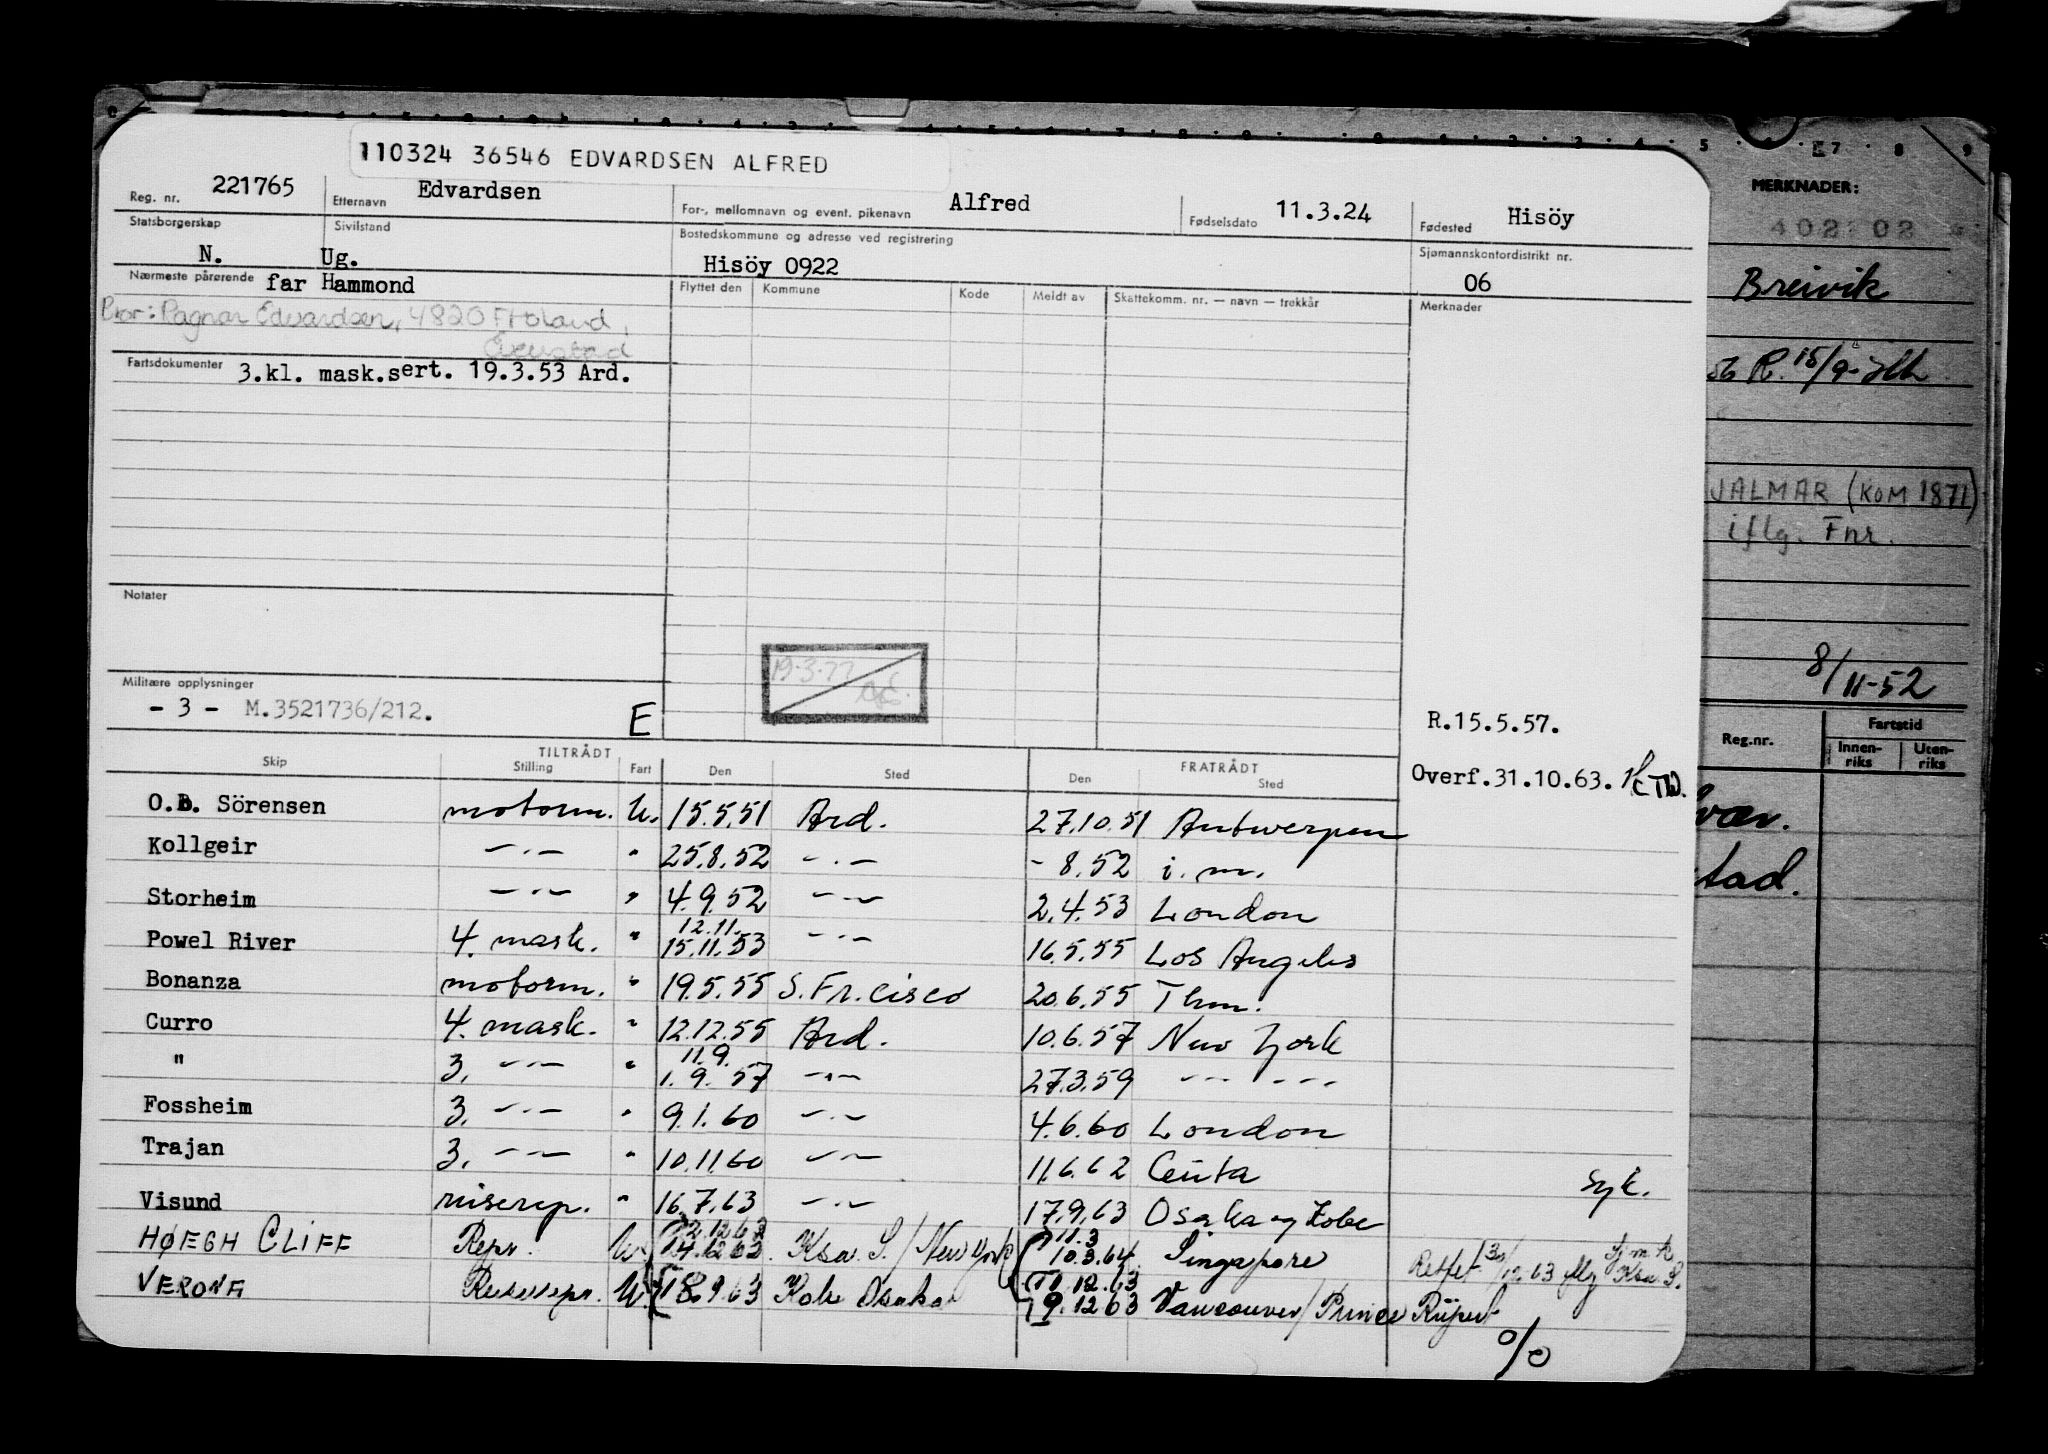 110324 36546 EDVARDSEN ALFRED
Reg. nr. 221765 Etternavn Edvardsen For-, mellomnavn og event. pikenavn Alfred Fødselsdato 11.3.24 Fødested Hisöy
Statsborgerskap N. Sivilstand Ug. Bostedskommune og adresse ved registrering Hisöy 0922 Sjømannskontordistrikt nr. 06
Nærmeste pårørende far Hammond Flyttet den Kommune Kode Meldt av Skattekomm. nr. — navn — trekkår Merknader
Bror: Ragnar Edvardsen, 4820 Froland,
Evenstad
Fartsdokumenter 3.kl. mask.sert. 19.3.53 Ard.
Notater
19.3.77
Militære opplysninger
- 3 - M.3521736/212. E
R.15.5.57.
Overf.31.10.63.
TILTRÅDT FRATRÅDT
Skip Stilling Fart Den Sted Den Sted
O.B. Sörensen motorm. U. 15.5.51 Ard. 27.10.51 Antwerpen
Kollgeir —·— " 25.8.52 —·— - 8.52 i.m.
Storheim —·— " 4.9.52 —·— 2.4.53 London
Powel River 4. mask. " 12.11. 15.11.53 —·— 16.5.55 Los Angeles
Bonanza motorm. " 19.5.55 S.Fr.cisco 20.6.55 Thm.
Curro 4. mask. " 12.12.55 Ard. 10.6.57 New York
" 3. —·— " 11.9. 1.9.57 —·— 27.3.59 —·— —·—
Fossheim 3. —·— " 9.1.60 —·— 4.6.60 London
Trajan 3. —·— " 10.11.60 —·— 11.6.62 Ceuta Syk.
Visund reiserep. " 16.7.63 —·— 17.9.63 Osaka og Kobe
HØEGH CLIFF Repr. U 14.12.63 Ksa. S./New York 11.3 10.3.64 Singapore
VERONA Reiserepr. U 18.9.63 Kobe Osaka 11.12.63 9.12.63 Vancouver/Prince Rupert
o/o
MERKNADER:
402 02
Breivik
R. 15/9-
JALMAR (KOM 1871)
iflg. Fnr.
8/11-52
Reg.nr. Fartstid
Innen-riks Uten-riks
tad.